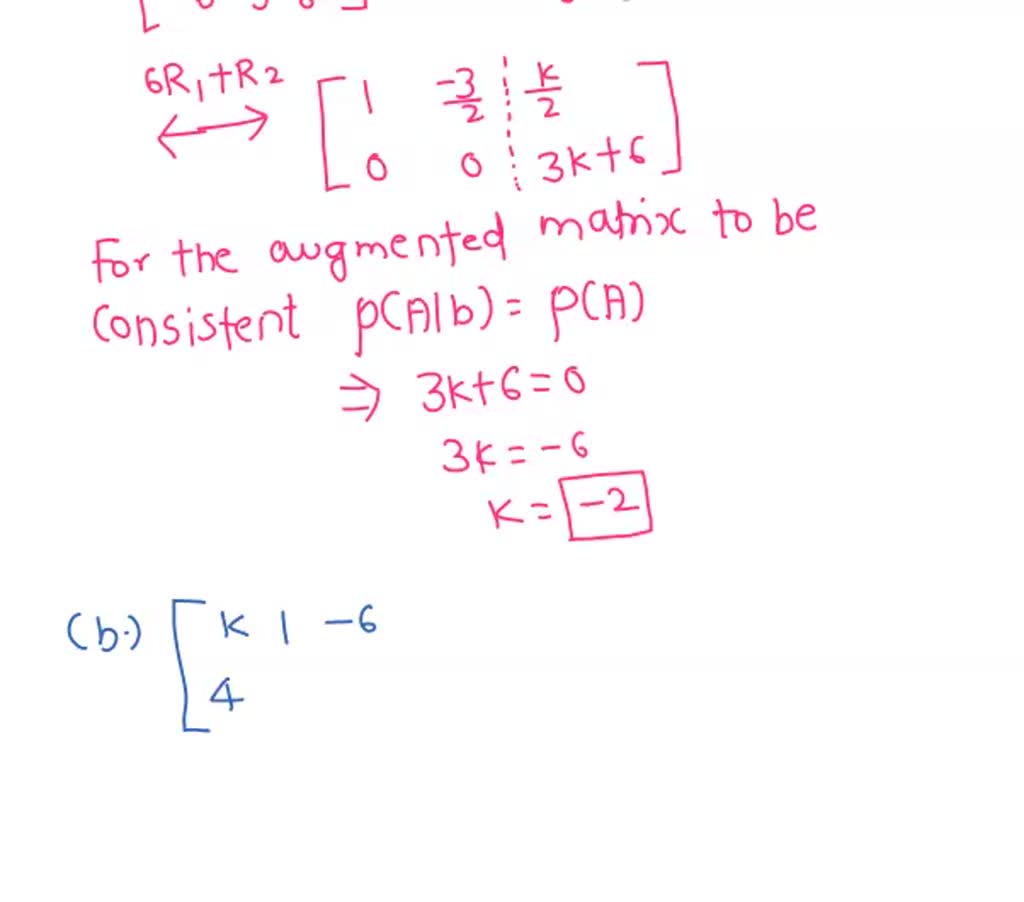 6R₁+R2
[ 1 -3/2 ⋮ k/2 ]
[ 0 0 ⋮ 3k+6 ]
For the augmented matrix to be
Consistent ρ(A|b) = ρ(A)
⇒ 3k+6=0
3k = -6
k = -2
(b.) [ k 1 -6
4